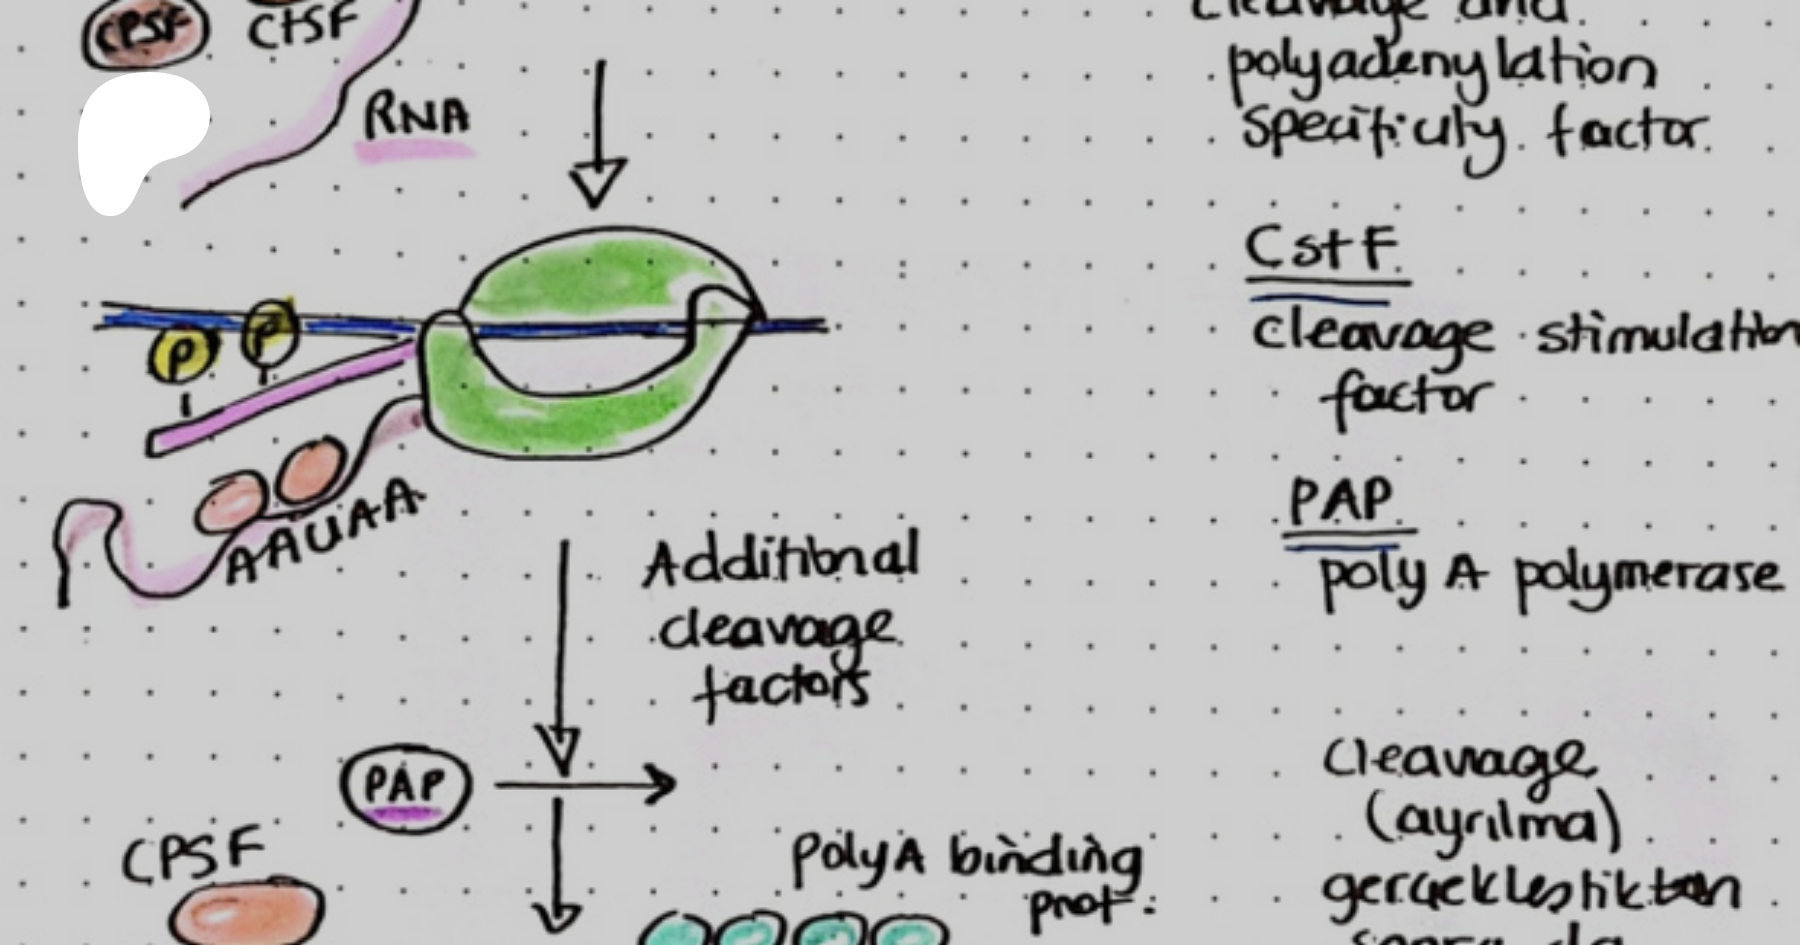 CPSF CtSF
RNA
P P
AAUAA
Additional
cleavage
factors
PAP
CPSF
Poly A binding
prot.
cleavage and
polyadenylation
specificity factor
CstF
cleavage stimulation
factor
PAP
poly A polymerase
cleavage
(ayrılma)